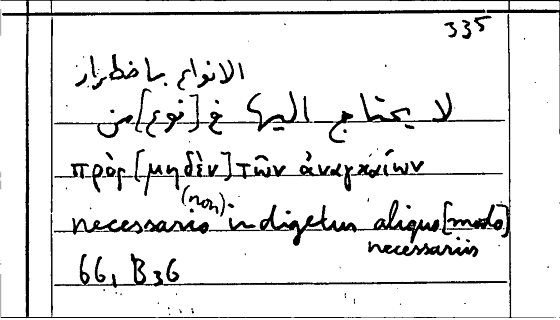 335
الانواع باضطرار
لا يحتاج اليها في [نوع] من
πρὸς [μηδὲν] τῶν ἀναγκαίων
(non)
necessario indigetur aliquo [modo]
necessariis
66, B36